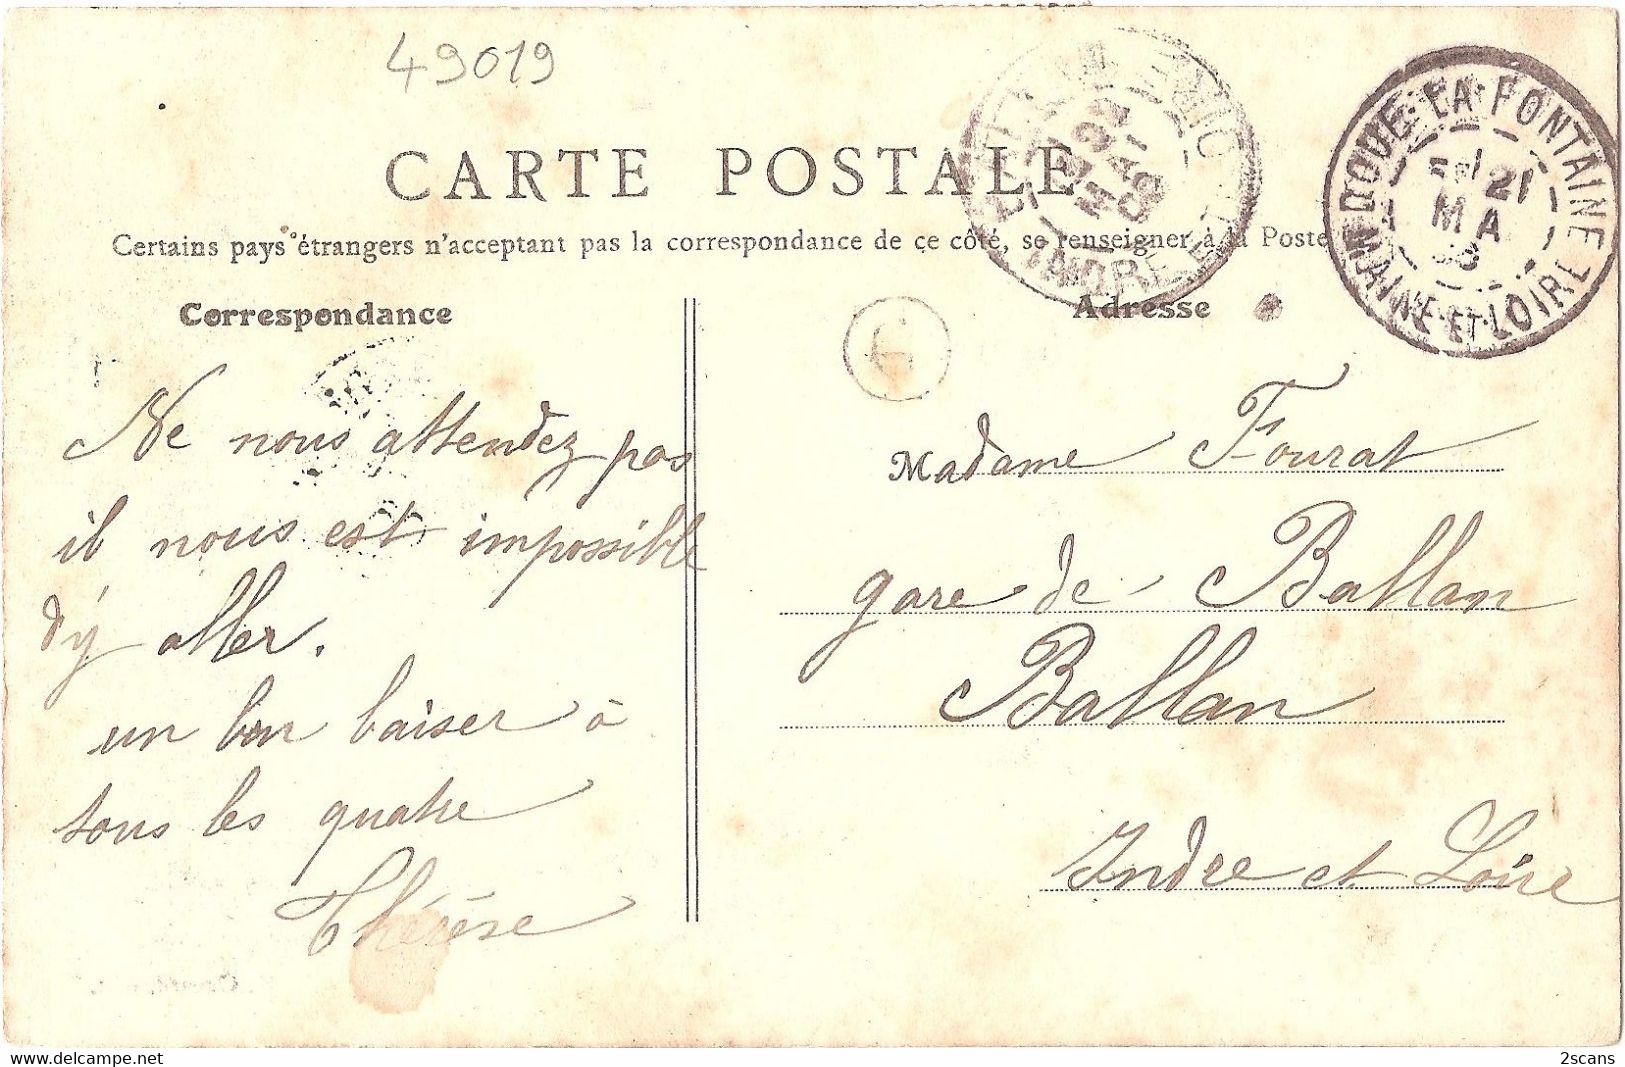 49019
CARTE POSTALE
Certains pays étrangers n'acceptant pas la correspondance de ce côté, se renseigner à la Poste
DOUÉ-LA-FONTAINE
21
MA
MAINE-ET-LOIRE
22
MAI
08
INDRE-ET-
Correspondance
Adresse
G
Ne nous attendez pas
il nous est impossible
d'y aller.
un bon baiser à
tous les quatre
Thérèse
Madame Fourat
gare de Ballan
Ballan
Indre et Loire
delcampe.net
2scans